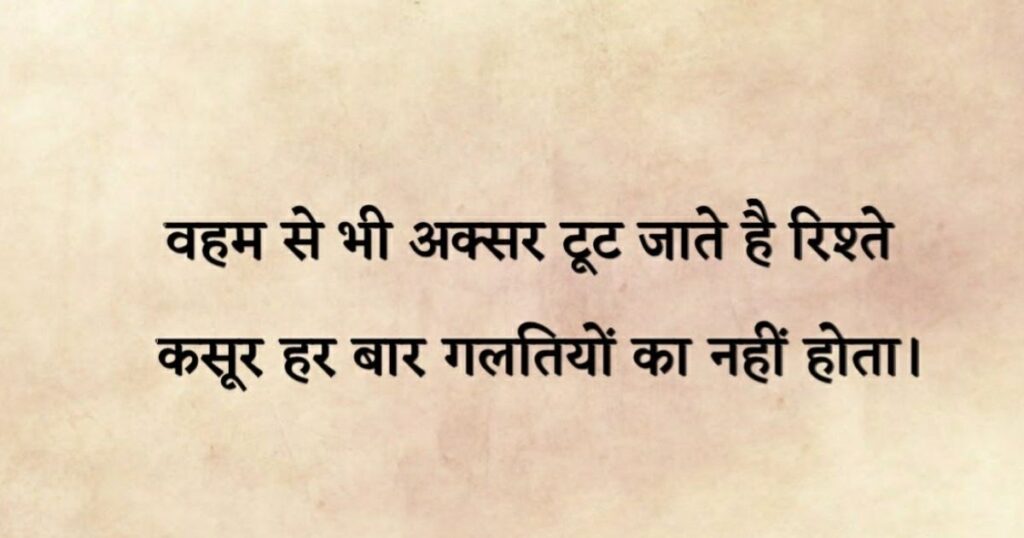 वहम से भी अक्सर टूट जाते है रिश्ते
कसूर हर बार गलतियों का नहीं होता।